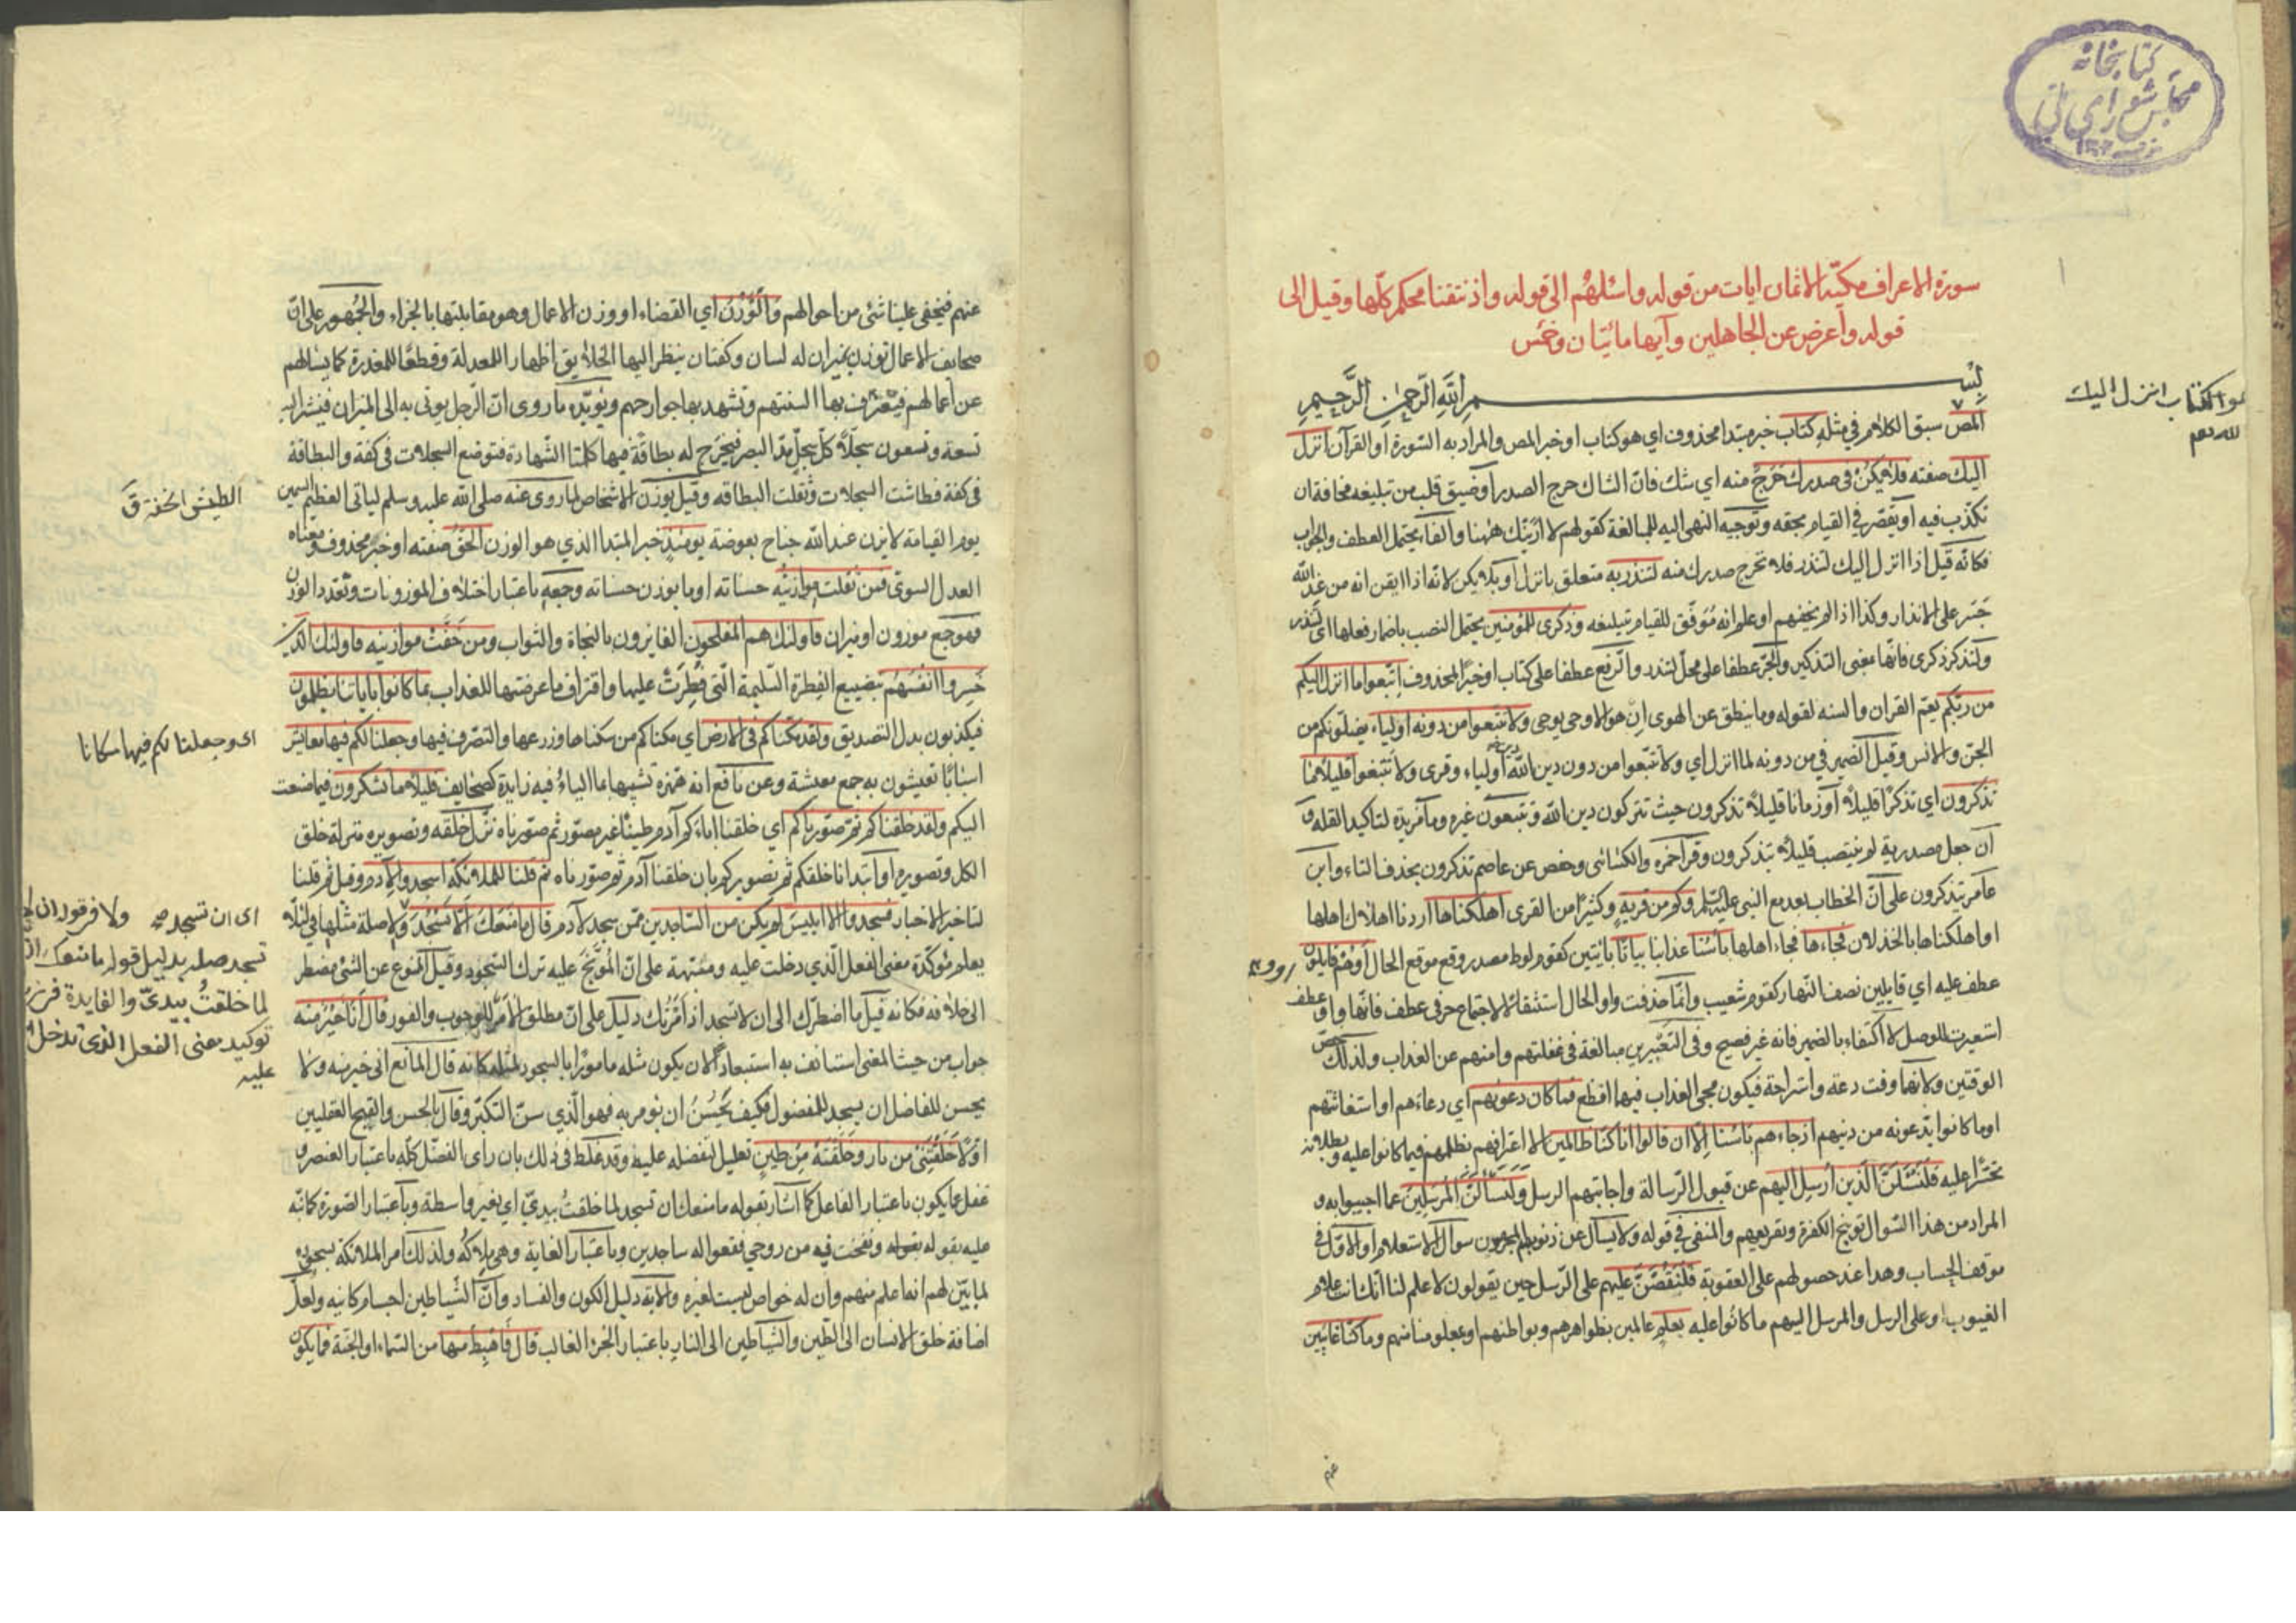 كتابخانه
مجلس شورای ملی
سورة الاعراف مكيّة الا ثمان ايات من قوله واسئلهُم الى قوله واذ نتقنا محكم كلّها وقيل الى
قوله وأعرض عن الجاهلين وآيها مائتان وخمس
بِسْمِ اللَّهِ الرَّحْمنِ الرَّحِيمِ
المص سبق الكلام في مثله كتاب خبر مبتدا محذوف اي هو كتاب او خبر المص والمراد به السّورة او القرآن انزل
اليك صفته فلا يَكُنْ فى صدرك حَرَجٌ منه اي شك فانّ الشاك حرج الصدر او ضيق قلب من تبليغه مخافة ان
تكذّب فيه او تقصّر في القيام بحقه وتوجيه النهى اليه للمبالغة كقولهم لا ارَيَنّك هٰهنا والفاء يحتمل العطف والجواب
فكانّه قيل اذا انزل اليك لتنذر فلا تحرج صدرك منه لتنذر به متعلق بانزل او بلا يكن لانّه اذا ايقن انه من عند الله
جَسَر على الانذار وكذا اذا لم يخفهم او علم انه مُوَفّق للقيام بتبليغه وذكرى للمؤمنين يحتمل النصب باضمار فعلها اى لتنذر
ولتذكر ذكرى فانّها بمعنى التذكير والجرّ عطفا على محلّ لتنذر والرّفع عطفا على كتاب او خبرًا لمحذوف اتّبعوا ما انزل اليكم
من ربّكم يعمّ القران والسنه لقوله وما ينطق عن الهوى اِن هو الا وحى يوحى ولا تتّبعوا من دونه اولياء يضلّونكم من
الجنّ والانس وقيل الضمير في من دونه لما انزل اي ولا تتّبعوا من دون دين الله اولياء وقرى ولا تبتغوا قليلاً ما
تذكرون اي تذكرًا قليلاً او زمانا قليلاً تذكرون حيث تتركون دين الله وتتبعون غيره وما مزيدة لتاكيد القلة و
ان جعل مصدرية لم ينتصب قليلاً بتذكرون وقرا حمزه والكسائى وحفص عن عاصم تذكرون بحذف التاء وابن
عامر يتذكرون على انّ الخطاب بعد مع النبي عليه السّلم وكم من قريةٍ وكثيرًا من القرى اهلكناها اردنا اهلاك اهلها
او اهلكناها بالخذلان فجاءها فجاء اهلها بأسُنا عذابنا بياتًا بائتين كقوم لوط مصدر وقع موقع الحال اَوْ هُمْ قايلون
عطف عليه اي قايلين نصف النّهار كقوم شعيب وانّما حذفت واو الحال استثقالا لاجتماع حرفى عطف فانّها واو عطف
استعيرت للوصل لا اكتفاء بالضمير فانه غير فصيح وفى التعبيرين مبالغة فى غفلتهم وامنهم عن العذاب ولذلك خصّ
الوقتين ولانّهما وقت دعة واستراحة فيكون مجى العذاب فيهما افظع فما كان دعويهم اي دعاءهم او استغاثتهم
او ما كانوا يدّعونه من دينهم اذ جاءهم باسُنا الا ان قالوا انا كنّا ظالمين الا اعترافهم بظلمهم فيما كانوا عليه وبطلانه
تحسّرا عليه فلنَسْئَلَنَّ الّذين اُرسِل اليهم عن قبول الرّسالة واجابتهم الرسل وَلَنَسْألَنَّ المُرْسَلِينَ عما اجيبوا به و
المراد من هذا السّوال توبيخ الكفرة وتقريعهم والمنفى في قوله ولا يسأل عن ذنوبهم المجرمون سوال الاستعلام او الاوّل فى
موقف الحساب وهذا عند حصولهم على العقوبة فَلَنَقُصَّنَّ عليهم على الرّسل حين يقولون لا علم لنا انّك انت علام
الغيوب او على الرسل والمرسل اليهم ما كانوا عليه بعلم عالمين بظواهرهم وبواطنهم او بمعلومنا منهم وما كنّا غايبين
عنهم
هو الكتاب انزل اليك
عنهم فيخفى علينا شئ من احوالهم وَالْوَزْنُ اي القضاء او وزن الاعمال وهو مقابلتها بالجزاء والجُمْهور على انّ
صحايف الاعمال توزن بميزان له لسان وكفتان ينظر اليها الخلايق اظهارا للمعدلة وقطعًا للمعذرة كما يسئلهم
عن أعمالهم فيعترف بها السنتهم وتشهد بها جوارحهم ويؤيّده ما روى انّ الرّجل يوتى به الى الميزان فينشر اليه
تسعة وتسعون سجلّاً كلّ سجلّ مدّ البصر فيُخرَج له بطاقةٌ فيها كلمتا الشّهادة فتوضع السجلات فى كفة والبطاقة
فى كفة فطاشت السجلات وثقلت البطاقه وقيل يوزن الاشخاص لما روى عنه صلى الله عليه وسلم لياتى العظيم السمين
يوم القيامة لا يزن عند الله جناح بعوضة يومئذٍ خبر المبتدا الذي هو الوزن الحَقُّ صفته او خبر محذوف ومعناه
العدل السوىّ فمن ثقلت موازينُه حسناته او ما يوزن حسناته وجمعه باعتبار اختلاف الموزونات وتعدد الوزن
فهو جمع موزون او ميزان فاولئك هم المفلحون الفايزون بالنجاة والثواب ومن خَفَّتْ موازينه فاولئك الذين
خَسِروا انفسَهُم بتضييع الفِطرة السّليمة الّتى فُطِرَتْ عليها واقتراف ما عرضتها للعذاب بما كانوا باياتنا يظلمون
فيكذبون بدل التصديق ولقد مكّنّاكم فى الارض اي مكناكم من سكناها وزرعها والتصرّف فيها وجعلنا لكم فيها معايش
اسبابًا تعيشون به جمع معيشة وعن نافع انه همزه تشبيها بما الياءُ فيه زايدة كصحايف قليلاً ما تشكرون فيما صنعت
اليكم ولقد خلقناكم ثمّ صوّرناكم اي خلقنا اباءكم آدم طينًا غير مصوّر ثم صوّرناه نزّل خلقه وتصويره منزلة خلق
الكل وتصويره او ابتدانا خلقكم ثم تصويركم بان خلقنا آدم ثم صوّرناه ثم قلنا للملائكة اسجدوا لآدم وقيل ثم قلنا
لتاخير الاخبار فسجدوا الا ابليسَ لم يكن من السّاجدين ممّن سجد لآدم قال ما مَنَعَكَ اَلّا تَسْجُدَ ولا صلة مثلها فى لئلّا
يعلم مؤكّدة معنى الفعل الّذي دخلت عليه ومنبّهة على انّ المُوَبَّخَ عليه ترك السّجود وقيل الممنوع عن الشئ مضطر
الى خلافه فكانه قيل ما اضطرّك الى ان لا تسجد اذ اَمَرْتُك دليل على انّ مطلق الأمر للوجوب والفور قال أَنَا خَيْرٌ منه
جواب من حيث المعنى استانف به استبعادًا لان يكون مثله مامورًا بالسجود لمثله كانه قال المانع انى خير منه ولا
يحسن للفاضل ان يسجد للمفضول فكيف يَحْسُنُ ان يؤمر به فهو الّذي سنّ التكبّر وقال بالحسن والقبح العقليين
اوّلا خَلَقْتَنِى من نار وخَلَقْتَهُ مِنْ طِينٍ تعليل لتفضله عليه وقد غَلَط فى ذلك بان راى الفضل كلّه باعتبار العنصر و
غفل عما يكون باعتبار الفاعل كما اشار بقوله ما منعك ان تسجد لما خلقتُ بيديّ اي بغير واسطة وباعتبار الصّورة كما نبّه
عليه بقوله ونفخت فيه من روحي فقعوا له ساجدين وباعتبار الغاية وهى ملاكُه ولذلك امر الملائكة بسجوده
لما بيّن لهم انه اعلم منهم وان له خواص ليست لغيره والاية دليل الكون والفساد وانّ الشّياطين اجسام كائنه ولعلّ
اضافة خلق الانسان الى الطّين والشياطين الى النار باعتبار الجزء الغالب قال فَاهْبِطْ منها من السّماء او الجنّة فما يكون
الطيش الخفة ق
اى وجعلنا لكم فيها مكانا
اى ان تسجد صح ولا فى قوله ان لا
تسجد صله بدليل قوله ما منعك ان
لما خلقتُ بيديّ والفايدة فى
توكيد معنى الفعل الذى تدخل
عليه